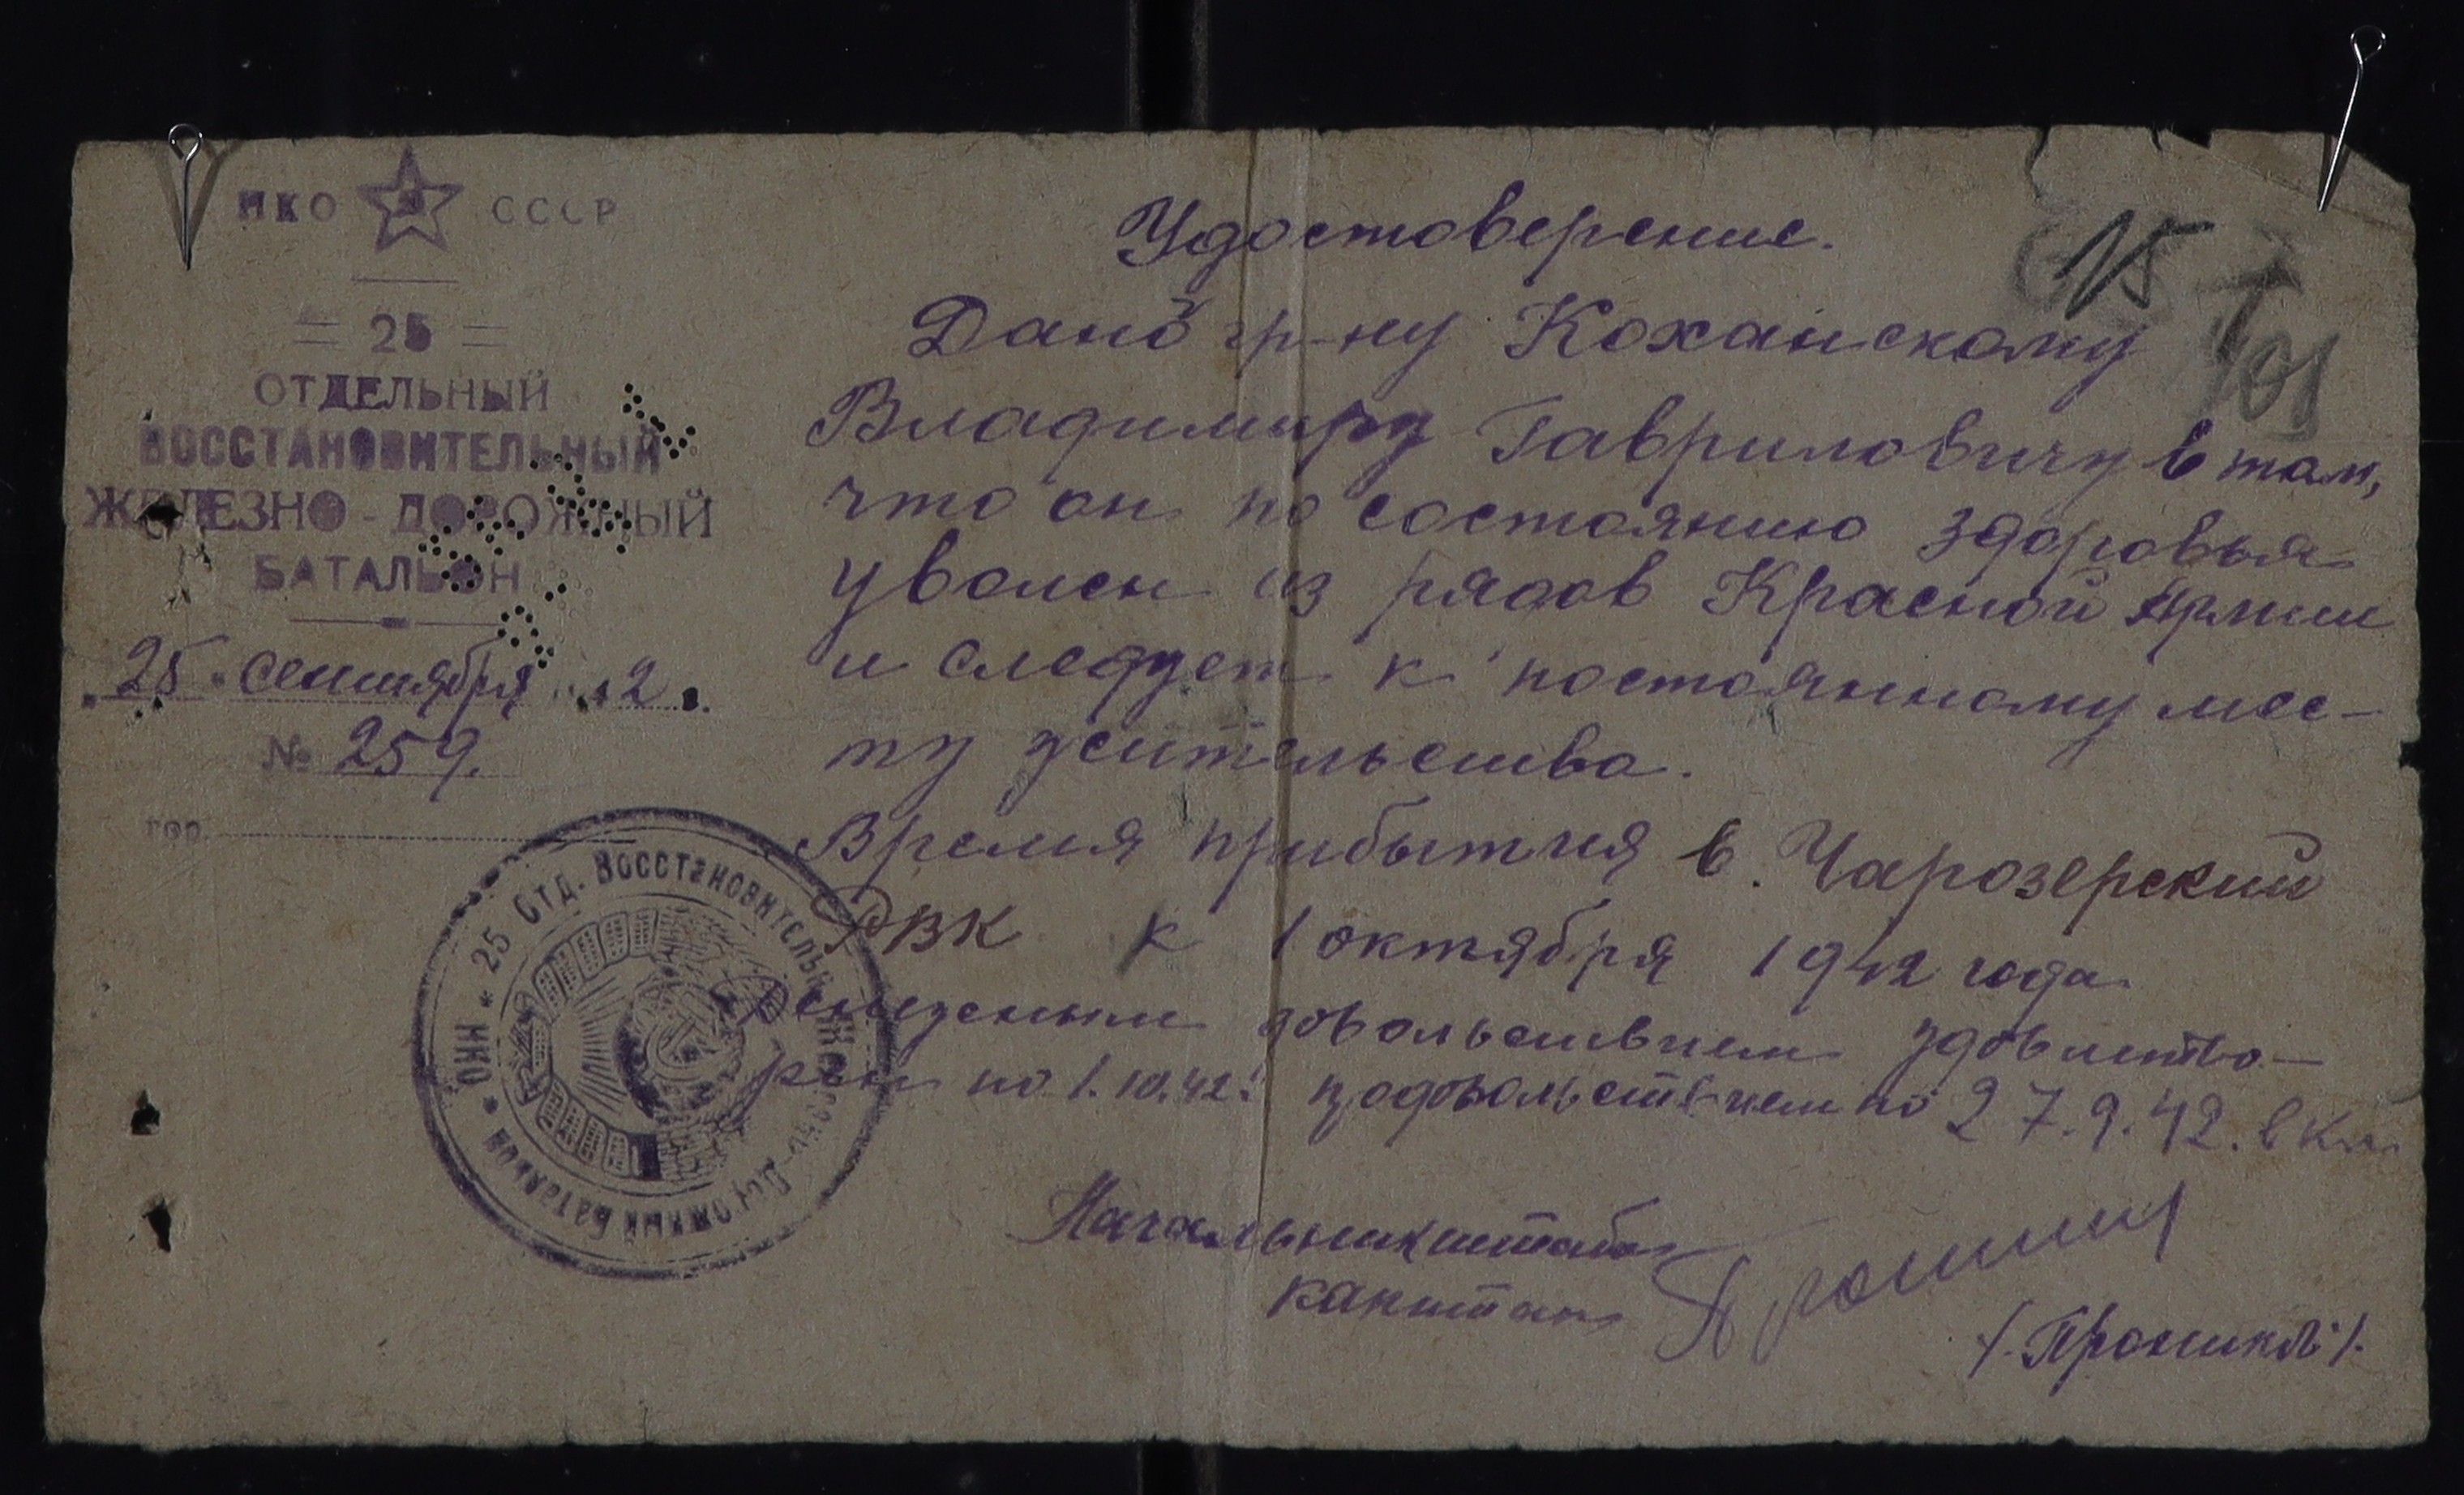 НКО СССР
= 25 =
ОТДЕЛЬНЫЙ
ВОССТАНОВИТЕЛЬНЫЙ
ЖЕЛЕЗНО-ДОРОЖНЫЙ
БАТАЛЬОН
„25" сентября 42 г.
№ 259.
гор.
НКО * 25 Отд. Восстановительный Железно-Дорожный Батальон *
15
101
Удостоверение.
Дано гр-ну Коханскому
Владимиру Гавриловичу в том,
что он по состоянию здоровья
уволен из рядов Красной Армии
и следует к постоянному мес-
ту жительства.
Время прибытия в Чарозерский
РВК к 1 октября 1942 года.
Денежным довольствием удовлетво-
рен по 1.10.42г. продовольствием по 27.9.42. вкл.
Начальник штаба
капитан
/Пронин/.